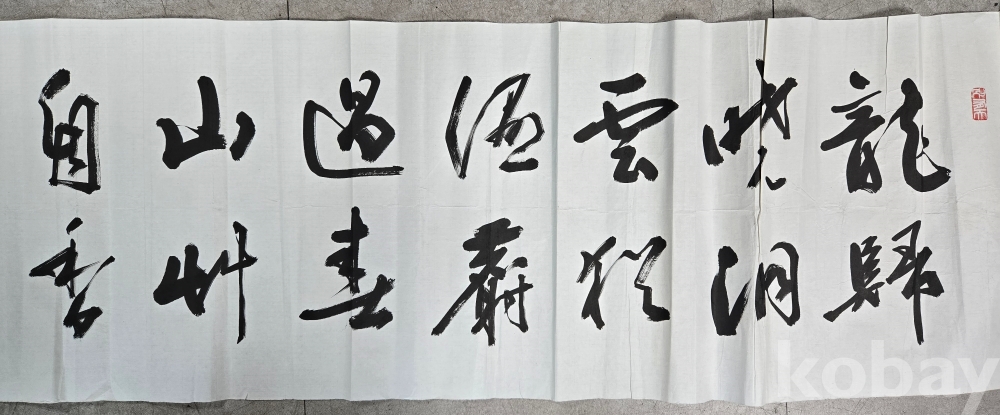 龍歸
曉洞
雲猶
濕麝
過春
山艸
自香
kobay